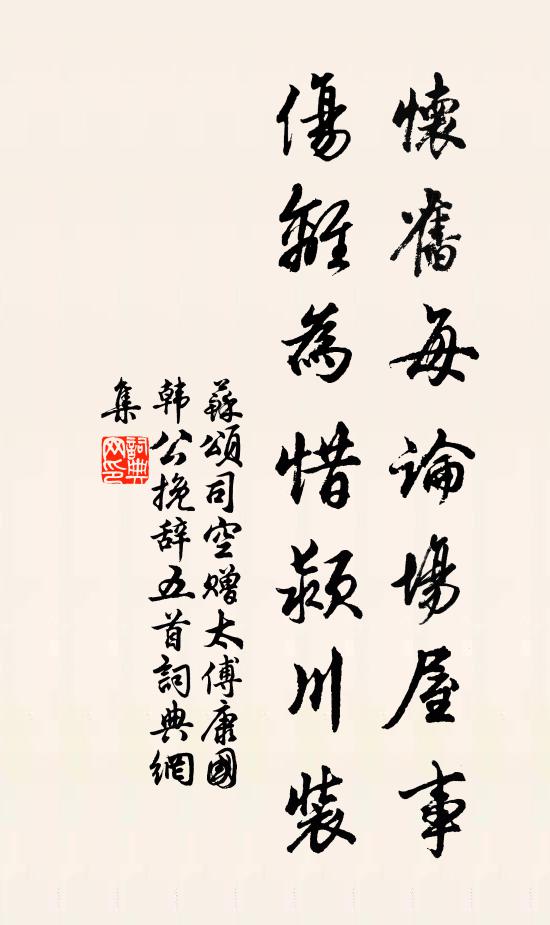 懷舊每論場屋事
傷離為惜潁川裝
蘇頌司空贈太傅康國
韩公挽辞五首詞典網
集
詞典
网印